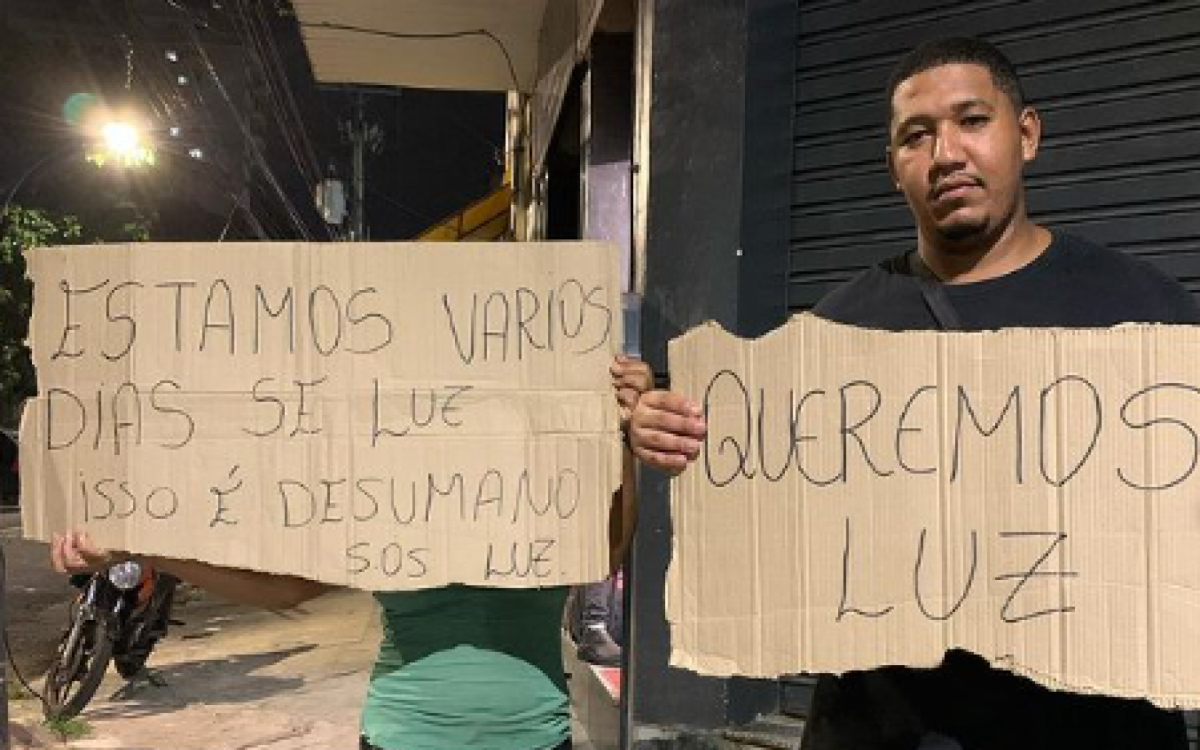 ESTAMOS VARIOS
DIAS SE LUZ
ISSO É DESUMANO
SOS LUZ.
QUEREMOS
LUZ